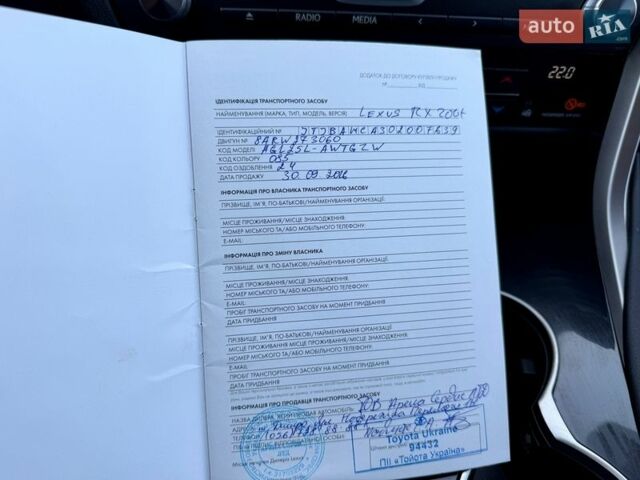 auto RIA .com
RADIO MEDIA
22.0
ДОДАТОК ДО ДОГОВОРУ КУПІВЛІ-ПРОДАЖУ
№ ВІД
ІДЕНТИФІКАЦІЯ ТРАНСПОРТНОГО ЗАСОБУ
НАЙМЕНУВАННЯ (МАРКА, ТИП, МОДЕЛЬ, ВЕРСІЯ) LEXUS RX 200t
ІДЕНТИФІКАЦІЙНИЙ № JTJBAMCA302007639
ДВИГУН № 8ARW273060
КОД МОДЕЛІ AGL25L-AWTGZW
КОД КОЛЬОРУ 085
КОД ОЗДОБЛЕННЯ 24
ДАТА ПРОДАЖУ 30.09.2016
ІНФОРМАЦІЯ ПРО ВЛАСНИКА ТРАНСПОРТНОГО ЗАСОБУ
ПРІЗВИЩЕ, ІМ'Я, ПО-БАТЬКОВІ/НАЙМЕНУВАННЯ ОРГАНІЗАЦІЇ:
МІСЦЕ ПРОЖИВАННЯ/МІСЦЕ ЗНАХОДЖЕННЯ:
НОМЕР МІСЬКОГО ТА/АБО МОБІЛЬНОГО ТЕЛЕФОНУ:
E-MAIL:
ІНФОРМАЦІЯ ПРО ЗМІНУ ВЛАСНИКА
ПРІЗВИЩЕ, ІМ'Я, ПО-БАТЬКОВІ/НАЙМЕНУВАННЯ ОРГАНІЗАЦІЇ:
МІСЦЕ ПРОЖИВАННЯ/МІСЦЕ ЗНАХОДЖЕННЯ:
НОМЕР МІСЬКОГО ТА/АБО МОБІЛЬНОГО ТЕЛЕФОНУ:
E-MAIL:
ПРОБІГ ТРАНСПОРТНОГО ЗАСОБУ НА МОМЕНТ ПРИДБАННЯ
ДАТА ПРИДБАННЯ
ПРІЗВИЩЕ, ІМ'Я, ПО-БАТЬКОВІ/НАЙМЕНУВАННЯ ОРГАНІЗАЦІЇ
МІСЦЕ ПРОЖИВАННЯ/МІСЦЕ ЗНАХОДЖЕННЯ:
НОМЕР МІСЬКОГО ТА/АБО МОБІЛЬНОГО ТЕЛЕФОНУ:
E-MAIL:
ПРОБІГ ТРАНСПОРТНОГО ЗАСОБУ НА МОМЕНТ ПРИДБАННЯ
ДАТА ПРИДБАННЯ
ІНФОРМАЦІЯ ПРО ПРОДАВЦЯ ТРАНСПОРТНОГО ЗАСОБУ
НАЗВА ДИЛЕРА, ЯКИЙ ПРОДАВ АВТОМОБІЛЬ
АДРЕСА
ТЕЛЕФОН
Toyota Ukraine
94432
ПІІ «Тойота Україна»